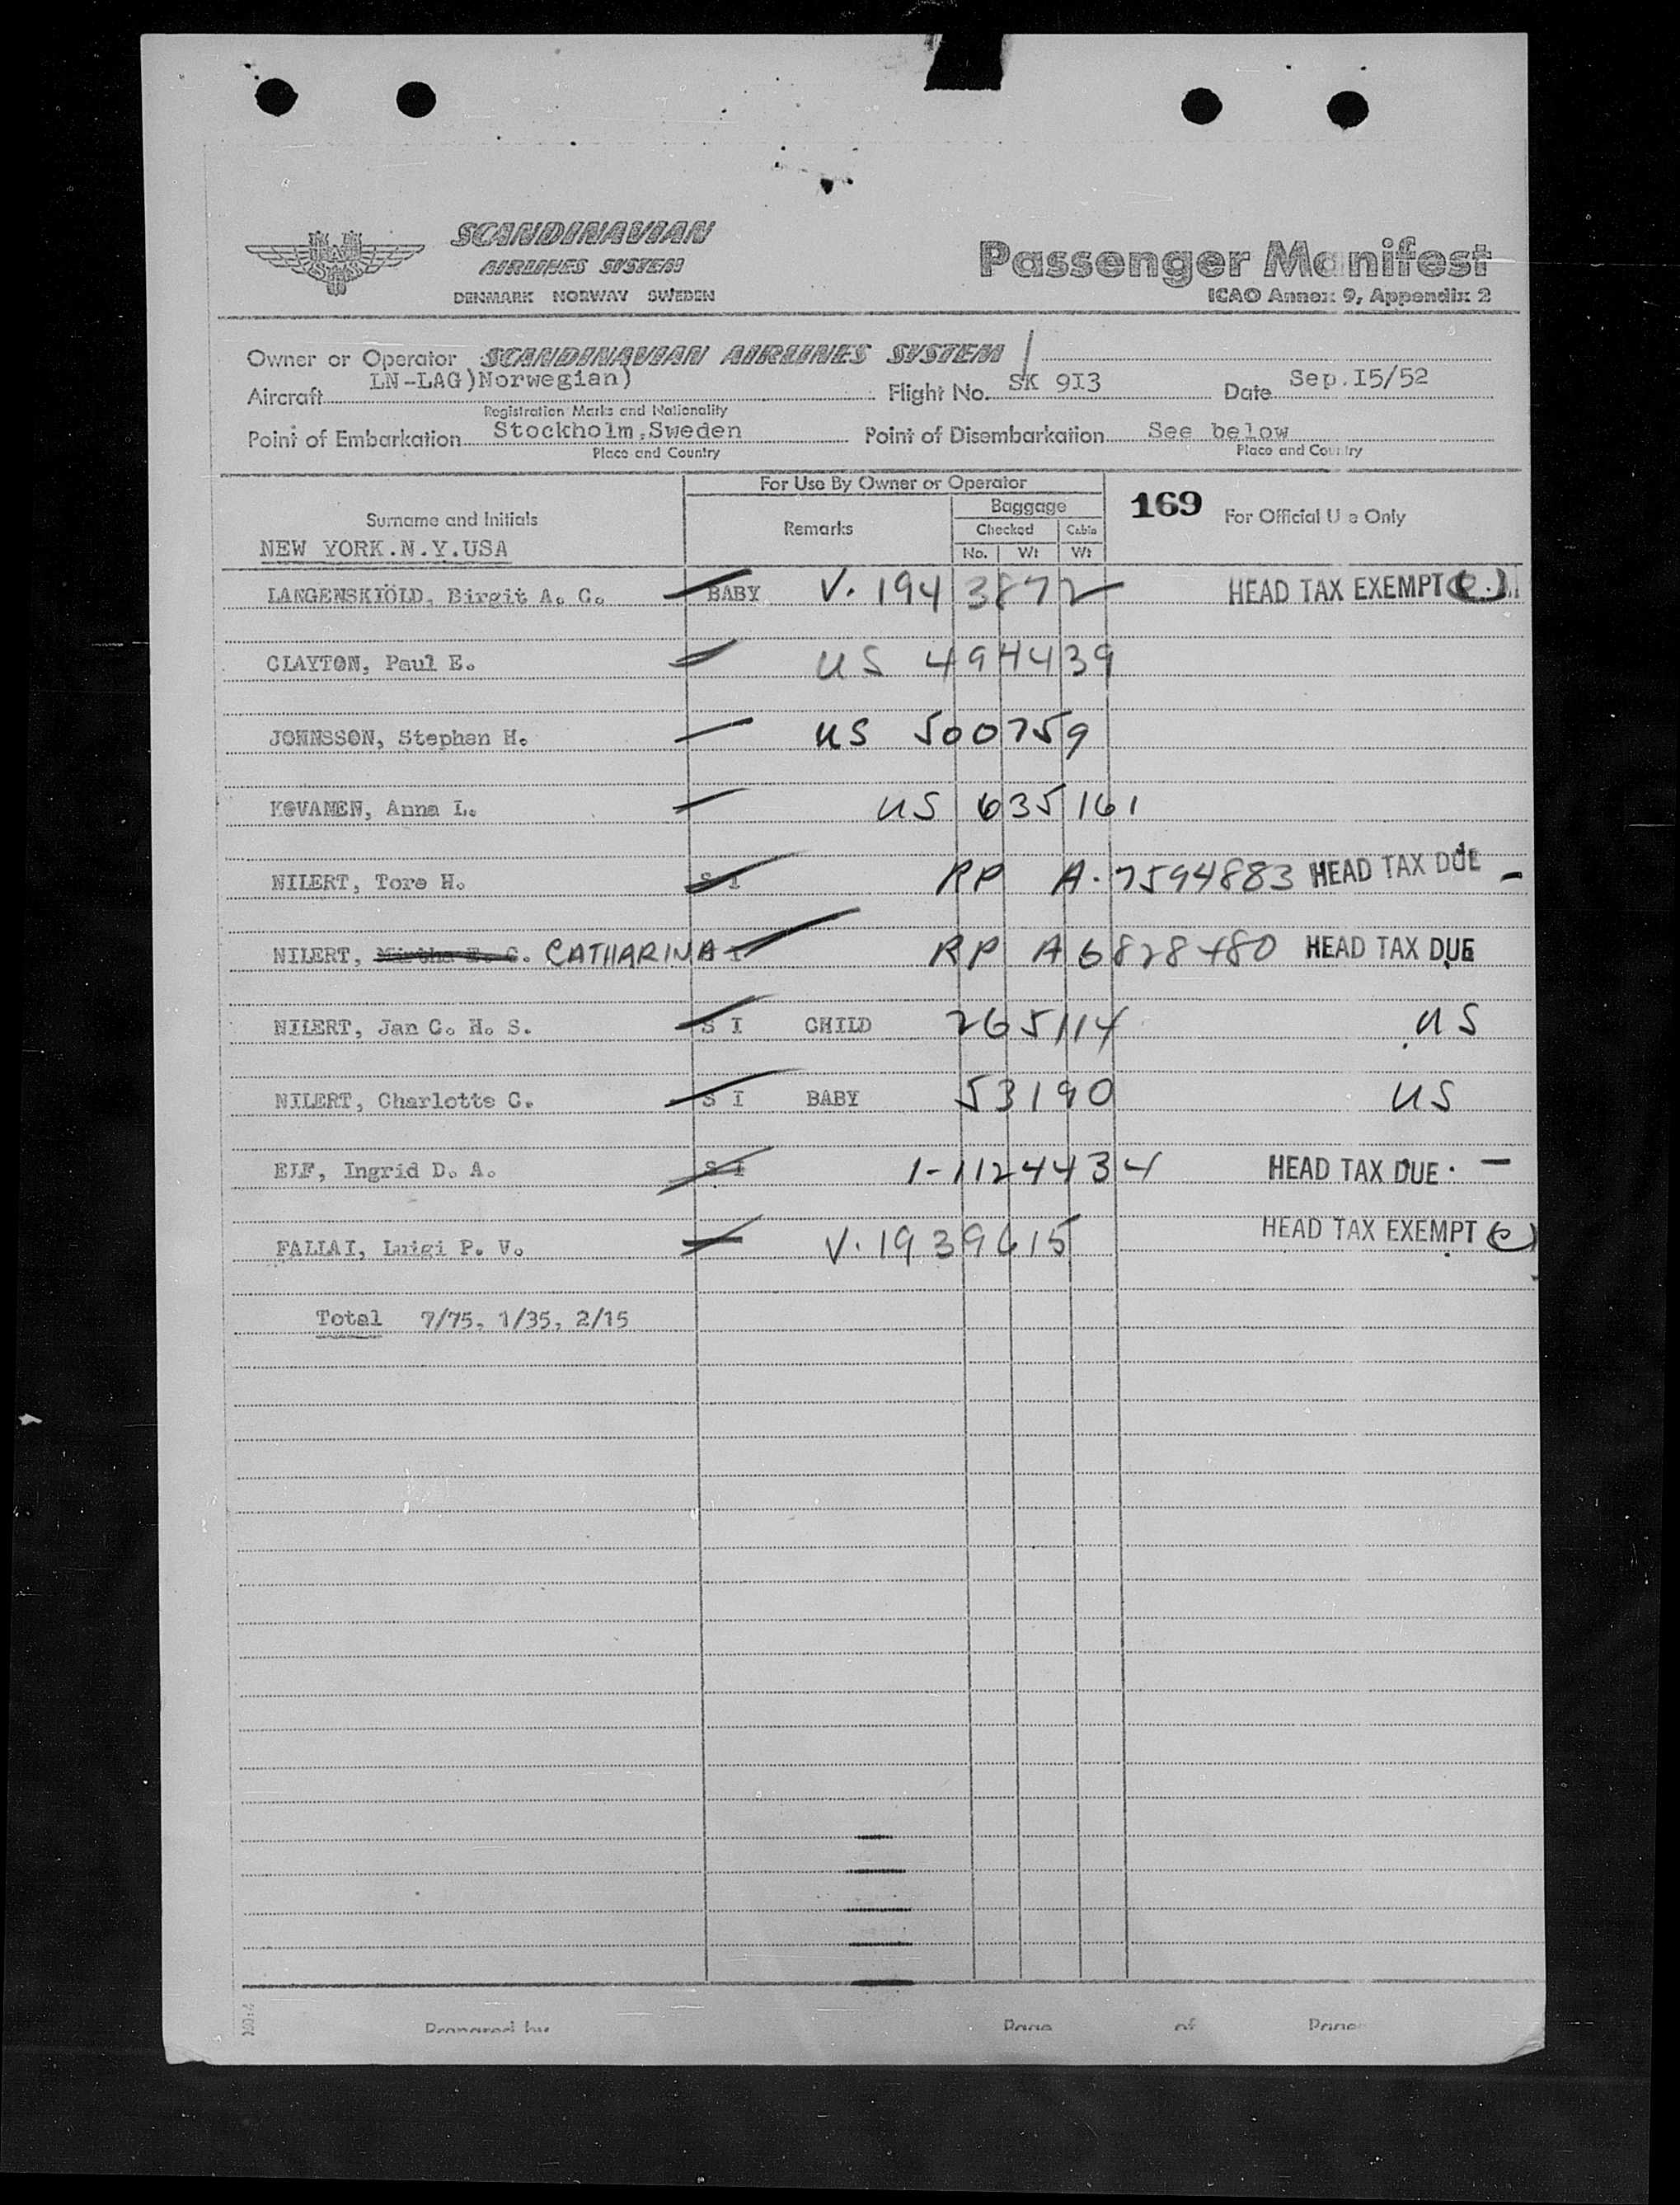 SCANDINAVIAN
AIRLINES SYSTEM
DENMARK NORWAY SWEDEN
Passenger Manifest
ICAO Annex 9, Appendix 2
Owner or Operator SCANDINAVIAN AIRLINES SYSTEM
Aircraft LN-LAG)Norwegian) Flight No. SK 9I3 Date Sep.I5/52
Registration Marks and Nationality
Point of Embarkation Stockholm,Sweden Point of Disembarkation See below
Place and Country Place and Country
For Use By Owner or Operator
Surname and Initials Remarks Baggage 169 For Official Use Only
Checked Cabin
NEW YORK.N.Y.USA No. Wt Wt
LANGENSKIÖLD, Birgit A. C. BABY V. 1943872 HEAD TAX EXEMPT
CLAYTON, Paul E. US 494439
JOHNSSON, Stephen H. US 500759
KOVANEN, Anna L. US 635161
NILERT, Tore H. S I RP A. 7594883 HEAD TAX DUE -
NILERT, Märtha E. C. CATHARINA I RP A6828480 HEAD TAX DUE
NILERT, Jan C. H. S. S I CHILD 265114 US
NILERT, Charlotte C. S I BABY 53190 US
ELF, Ingrid D. A. S I 1-1124434 HEAD TAX DUE. -
FALLAI, Luigi P. V. V. 1939615 HEAD TAX EXEMPT (e)
Total 7/75, 1/35, 2/15
Prepared by Page of Pages